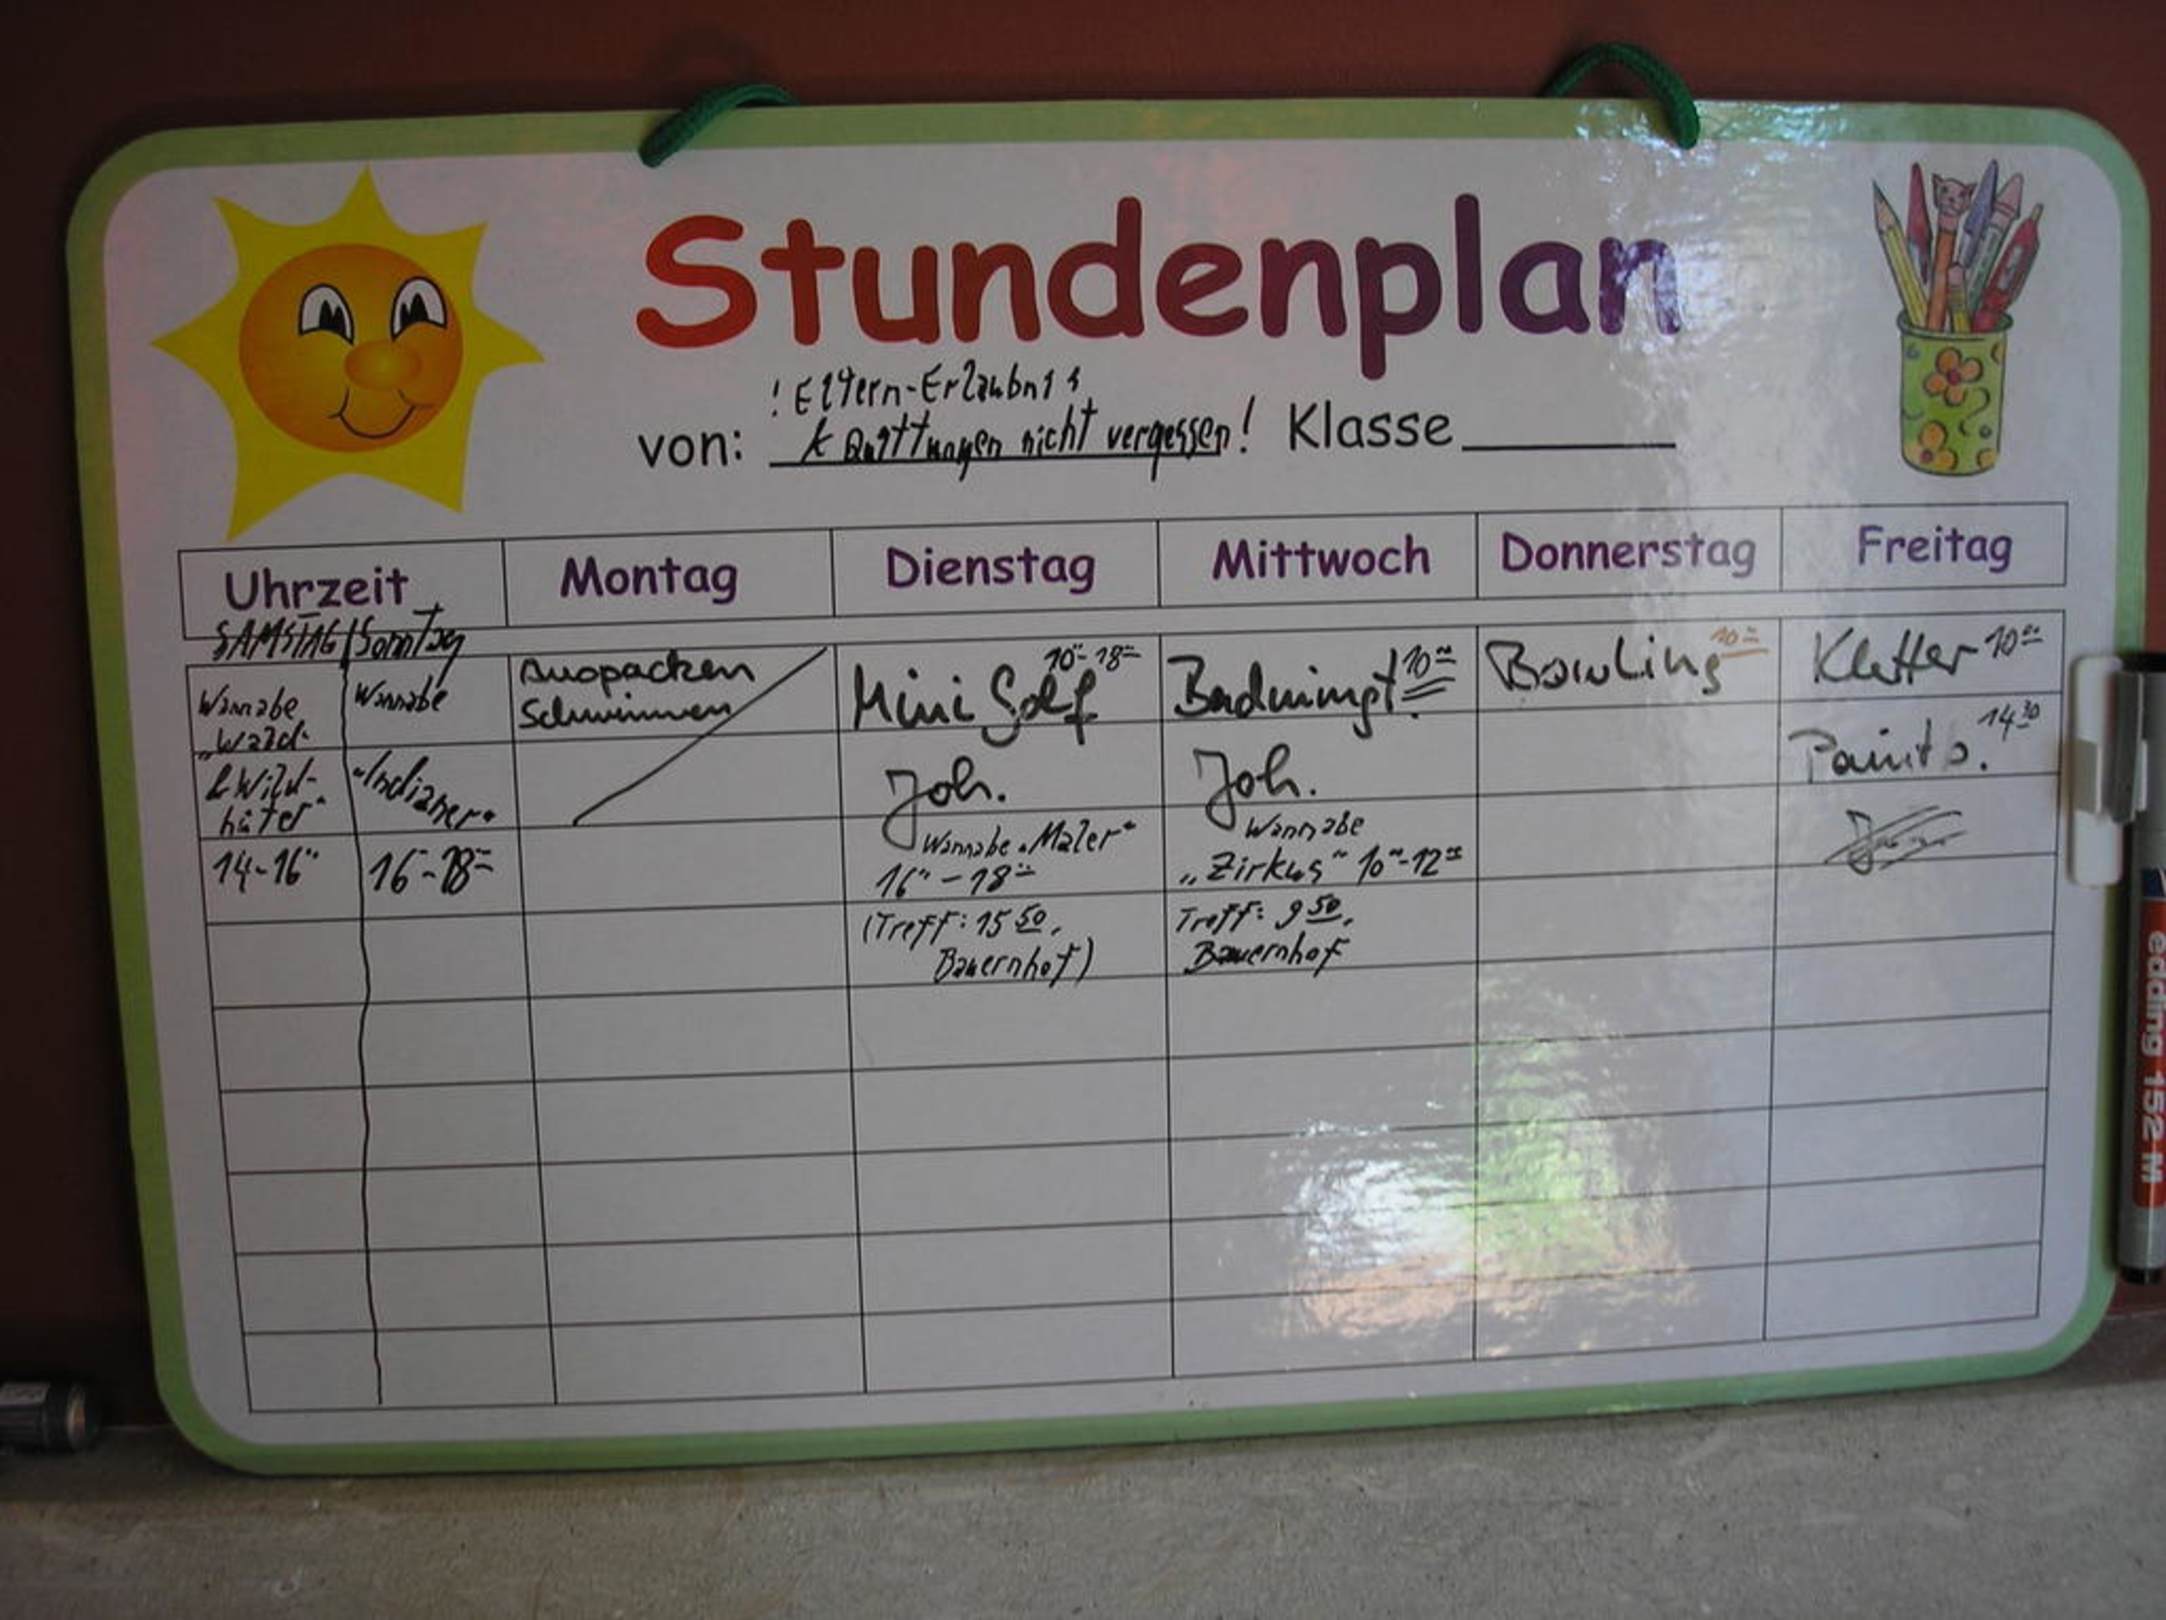 Stundenplan
! Eltern-Erlaubnis
von: & Quittungen nicht vergessen! Klasse
Uhrzeit Montag Dienstag Mittwoch Donnerstag Freitag
SAMSTAG Sonntag
Wannabe
"Wald-
& Wild-
hüter"
14-16°°
Wannabe
"Indianer"
16°°-18°°
Auspacken
Schwimmen
Mini Golf 10°°-18°°
Joh.
Wannabe "Maler"
16°°-18°°
(Treff: 15 50,
Bauernhof)
Badmingt. 10°°
Joh.
Wannabe
"Zirkus" 10°°-12°°
Treff: 9 50,
Bauernhof
Bowling 10°°
Kletter 10°°
Paintb. 14 30
edding 152 M